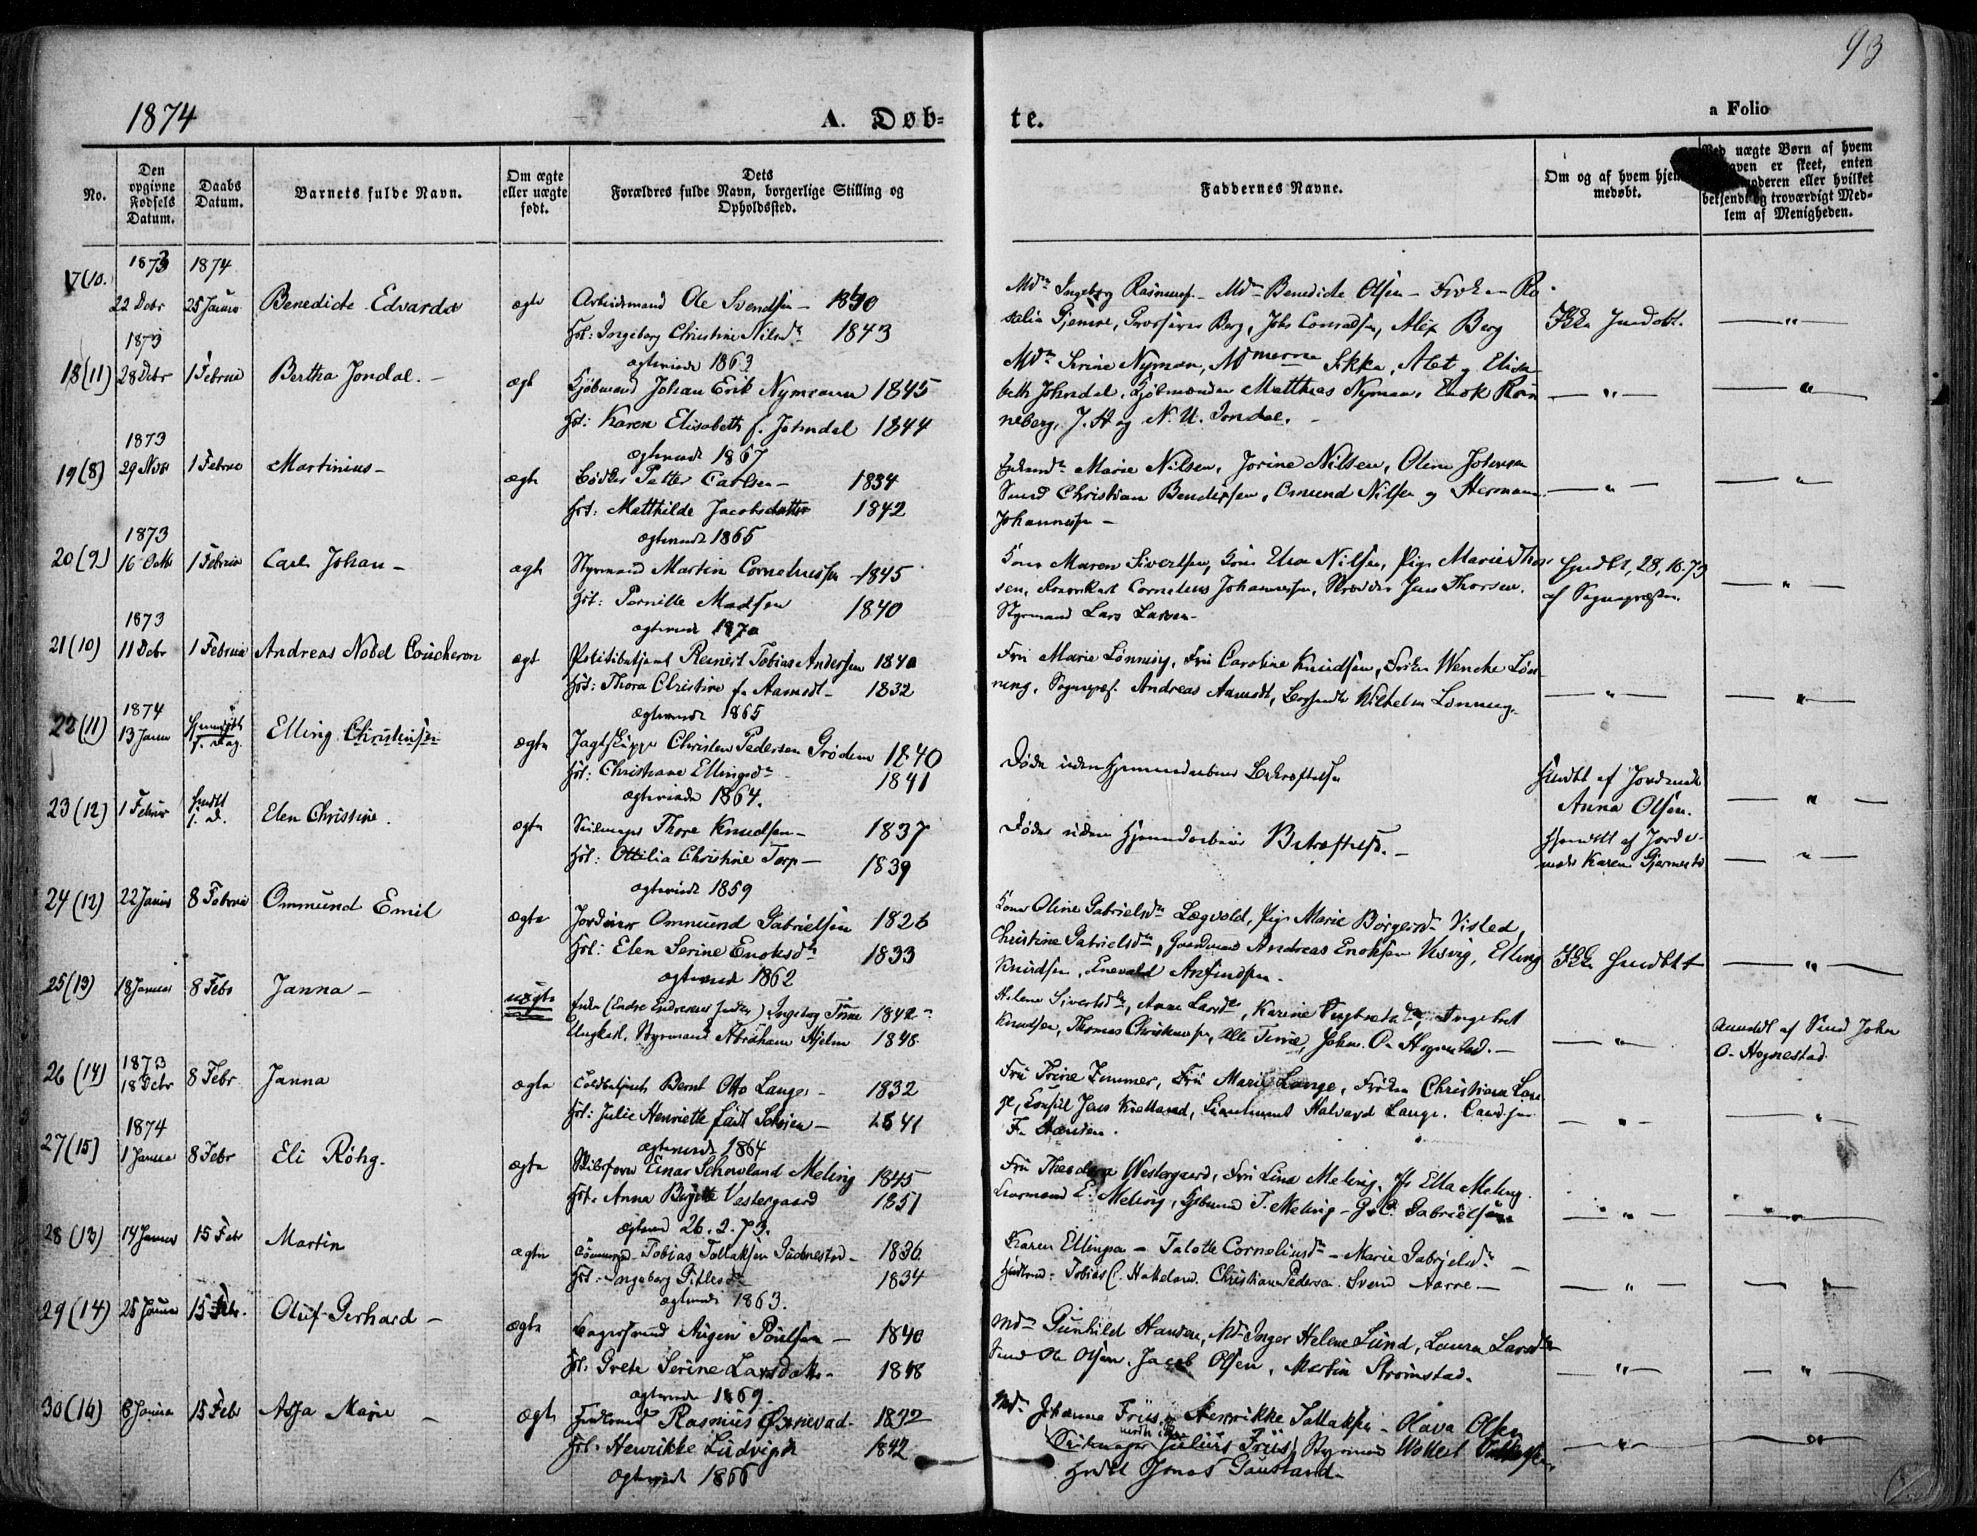 93
1874
A. Døb-
te.
a Folio
No.
Den opgivne Fødsels Datum.
Daabs Datum.
Barnets fulde Navn.
Om ægte eller uægte født.
Dets Forældres fulde Navn, borgerlige Stilling og Opholdssted.
Faddernes Navne.
Om og af hvem hjem- medøbt.
Ved uægte Børn af hvem
er skeet, enten
moderen eller hvilket
bekjendt og troværdigt Med-
lem af Menigheden.
17(10. 1873 22 Decbr 1874 25 Januar Benedicte Edvarda ægte Arbeidsmand Ole Svendsen - 1840
Hst: Ingeborg Christine Nilsdr 1843
ægteviede 1863
Mdm Ingeborg Rasmus. - Mdm Benedicte Olsen - Frøken Ro
salie Gjemre, Grosserer Berg, Johs Conradsen, Alex Berg
Ikke hmdøbt. — " —
18(11) 1873 28 Decbr 1 Februar Bertha Jondal. - ægt Kjøbmand Johan Erik Nymann 1845
Hst: Karen Elisabeth f. Johndal 1844
ægteviede 1867
Mdm Serine Nyman, Mdmerne Sikke, Alet og Elisa
beth Johndal, Kjøbmænden Matthias Nyman, Enok Røn
neberg, J. H og N. U. Jondal. -
— " — — " —
19(8) 1873 29 Novbr 1 Februar Martinius - ægte Bødker Petter Carlsen - 1834
Hst: Matthilde Jacobsdatter 1842
ægteviede 1865
Marie Nilsen, Jorine Nilsen, Oline Johnsen
Svend Christian Bendixsen, Osmund Nilsen og Herman
Johannesen -
— " — — " —
20(9) 1873 16 Octbr 1 Februar Carl Johan - ægte Styrmand Martin Corneliussen - 1845
Hst: Pernille Madsen 1840
ægteviede 1870
Kone Maren Sivertsen, Kone Elen Nilsen, Pige Marie Thor
sen, Cornelius Johannesen, Skrædder Jens Thorsen.
Styrmand Lars Larsen -
hmdbt, 28, 10. 73
af Sognepræsten.
— " —
21(10) 1873 11 Decbr 1 Februar Andreas Nobel Coucheron ægt Politibetjent Reinert Tobias Andersen 1840
Hst: Thora Christine f. Aamodt - 1832
ægteviede 1865
Fru Marie Lønning, Fru Caroline Knudsen, Frøken Wencke Løn
ning, Sognepræst. Andreas Aamodt, Wilhelm Lønning.
— " — — " —
22(11) 1874 13 Januar Hjemmedøbt s. Dag Elling Christensen ægte Jagtskipper Christen Pedersen Grødem 1840
Hst: Christiane Ellingsdr 1841
ægteviede 1864.
Døde uden Hjemmedaabens Bekræftelse
Hmdbt af Jordmoder
Anna Olsen.
— " —
23(12) 1 Februar hmdbt s. D. Elen Christine. ægte Seilmager Thore Knudsen - 1837
Hst: Ottilia Christine Torp - 1839
ægteviede 1859
Døde uden Hjemmedaabens Bekræftelse. -
Hjemdbt af Jorde
moder Karen Gjermestad
— " —
24(12) 22 Januar 8 Februar Ommund Emil ægte Jordeier Ommund Gabrielsen 1826
Hst: Elen Serine Enoksdr 1833
ægteviede 1862
Kone Oline Gabrielsdr Lægvold, Pige Marie Børgesdr Visted,
Christine Gabrielsdr, Gaardmand Andreas Enoksen Visvig, Elling
Knudsen, Enevald Anfindsen.
Ikke hmdbt — " —
25(13) 18 Januar 8 Febr Janna - uægte Enke (Endre Endresens Enke) Ingeborg Tine 1842
Ungkarl, Styrmand Abraham Hjelm 1848
Helene Sivertsdr, Anne Larsdr, Karine Ingbretsdr, Ingebret
Knudsen, Thomas Christensen, Olle Tine, Johan O. Hognestad. -
— " —
Anmeldt af Svend John
O. Hognestad.
26(14) 1873 18 Decbr 8 Febr Janna ægte Toldbetjent Bernt Otto Lange - 1832
Hst: Julie Henriette født Schiøn - 1841
ægteviede 1864
Fru Trine Zimmer, Fru Marie Lange, Frøken Christiana Lan
ge, Konsul Jens Kielland, Lieutenant Halvard Lange. Cand. jur
F. Hansen.
" "
27(15) 1874 1 Januar 8 Febr Eli Røhg. ægte Skibsfører Einar Schowland Meling 1845
Hst: Anna Birgitte Vestergaard 1851
ægteviede 26. 2. 73.
Fru Theodora Westergaard, Fru Lina Meling, Fr Ella Meling.
E. Meling, Kjøbmand T. Meling - G. C. Gabrielsen
— " — — " —
28(13) 14 Januar 15 Febr Martin ægte Tømmermd. Tobias Tollaksen Gudmestad - 1836
Hst: Ingeborg Gitlesdr 1834
ægteviede 1863.
Karen Ellingsen - Talette Corneliusdr - Marie Gabrielsdr -
Tobias C. Hakeland. Christian Pedersen. Svend Aarre -
— " — — " —
29(14) 25 Januar 15 Febr. Oluf Gerhard - ægte Bagersvend Augen Poulsen - 1840
Hst: Grete Serine Larsdatter - 1848
ægteviede 1869.
Mdm Gunhild Hansen, Mdm Inger Helene Lund, Laura Larsdtr
Svend Ole Olsen, Jacob Olsen, Martin Strømstad.
— " — — " —
30(16) 8 Januar 15 Febr Asja Marie - ægte Rasmus Østrevad 1832
Hst: Henrikke Ludvigsen 1842
ægteviede 1866
Mdm Johanna Friis, Henrikke Tallaksen - Olava Olsen
Seilmager Julius Friis, Styrmand Wollert Tallaksen,
Jonas Gausland -
— " — — " —